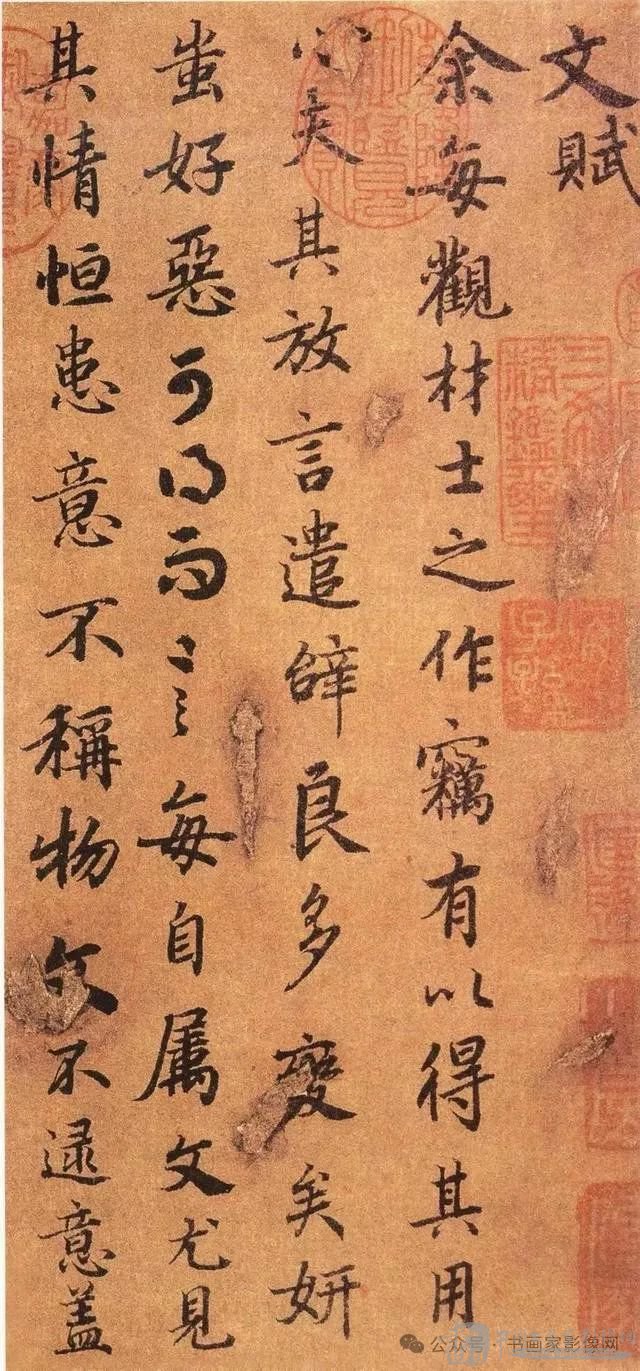 文賦
余每觀材士之作竊有以得其用
心夫其放言遣辭良多變矣妍
蚩好惡可得而言每自屬文尤見
其情恒患意不稱物文不逮意蓋
公众号·书画家影像网